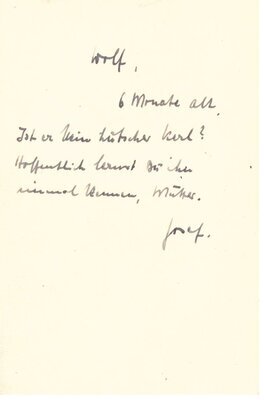 Wolf,
6 Monate alt
Ist er kein hübscher Kerl?
Hoffentlich lernst Du ihn
einmal kennen, Mutter.
Josef.